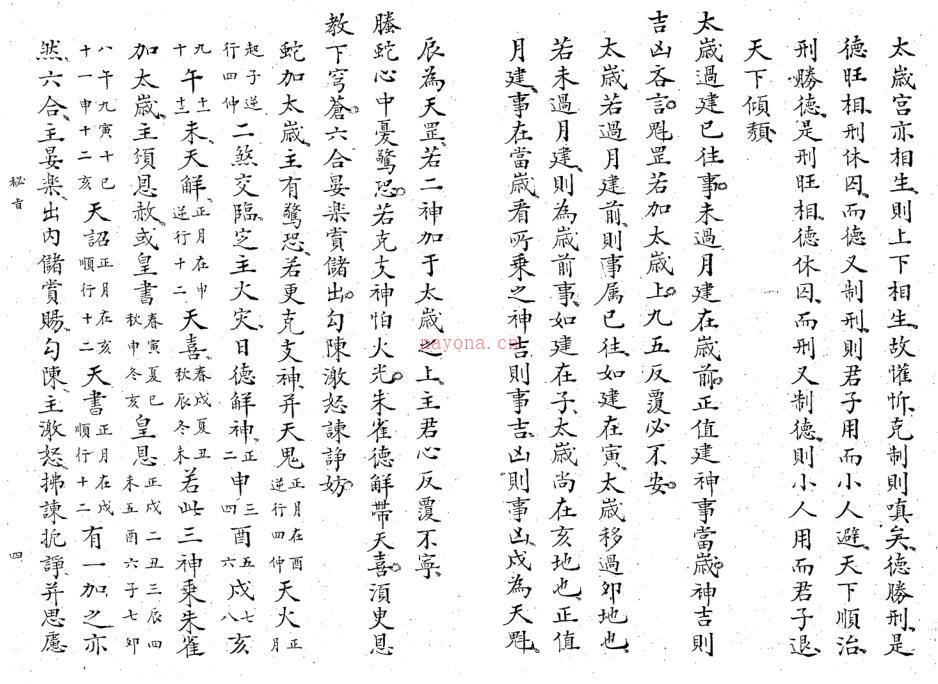 太歲宮亦相生、則上下相生、故懽忻、克制則嗔矣、德勝刑、是
德旺相、刑休囚、而德又制刑、則君子用而小人避、天下順治、
刑勝德、是刑旺相、德休囚、而刑又制德、則小人用而君子退、
天下傾頹、
太歲過建已往事、未過月建在歲前、正值建神事當歲、神吉則
吉凶吝言、魁罡若加太歲上、九五反覆必不安、
太歲若過月建前、則事属已往、如建在寅、太歲移過卯地也、
若未過月建、則為歲前事、如建在子、太歲尚在亥地也、正值
月建、事在當歲、看所乘之神、吉則事吉、凶則事凶、戌為天魁、
辰為天罡、若二神加于太歲之上、主君心反覆不寧、
螣蛇心中憂驚恐、若克支神怕火光、朱雀德解帶天喜、湏更恩
教下穹蒼、六合晏樂賞儲出、勾陳激怒諫諍妨、
蛇加太歲、主有驚恐、若更克支神、并天鬼正月在酉逆行四仲天火正月
起子逆行四仲二煞交臨、定主火灾、日德解神、正二申三四酉五六戌七八亥
九十午十一十二未天解、正月在申逆行十二天喜、春戌夏丑秋辰冬未若此三神乘朱雀
加太歲、主須恩赦、或皇書春寅夏巳秋申冬亥皇恩正戌二丑三辰四未五酉六子七卯
八午九寅十巳十一申十二亥天詔正月在亥順行十二天書正月在戌順行十二有一加之亦
然、六合、主晏樂、出内儲賞賜、勾陳、主激怒、拂諫扼諍、并思慮
秘旨
四
nayona.cn